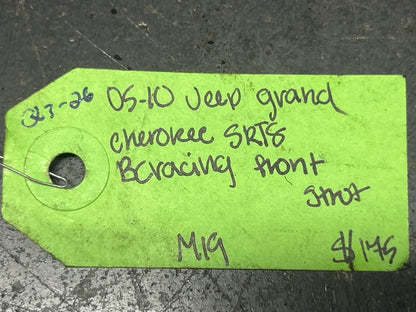 05-10 Jeep grand
cherokee SRT8
BCracing front
strut
M19
$175